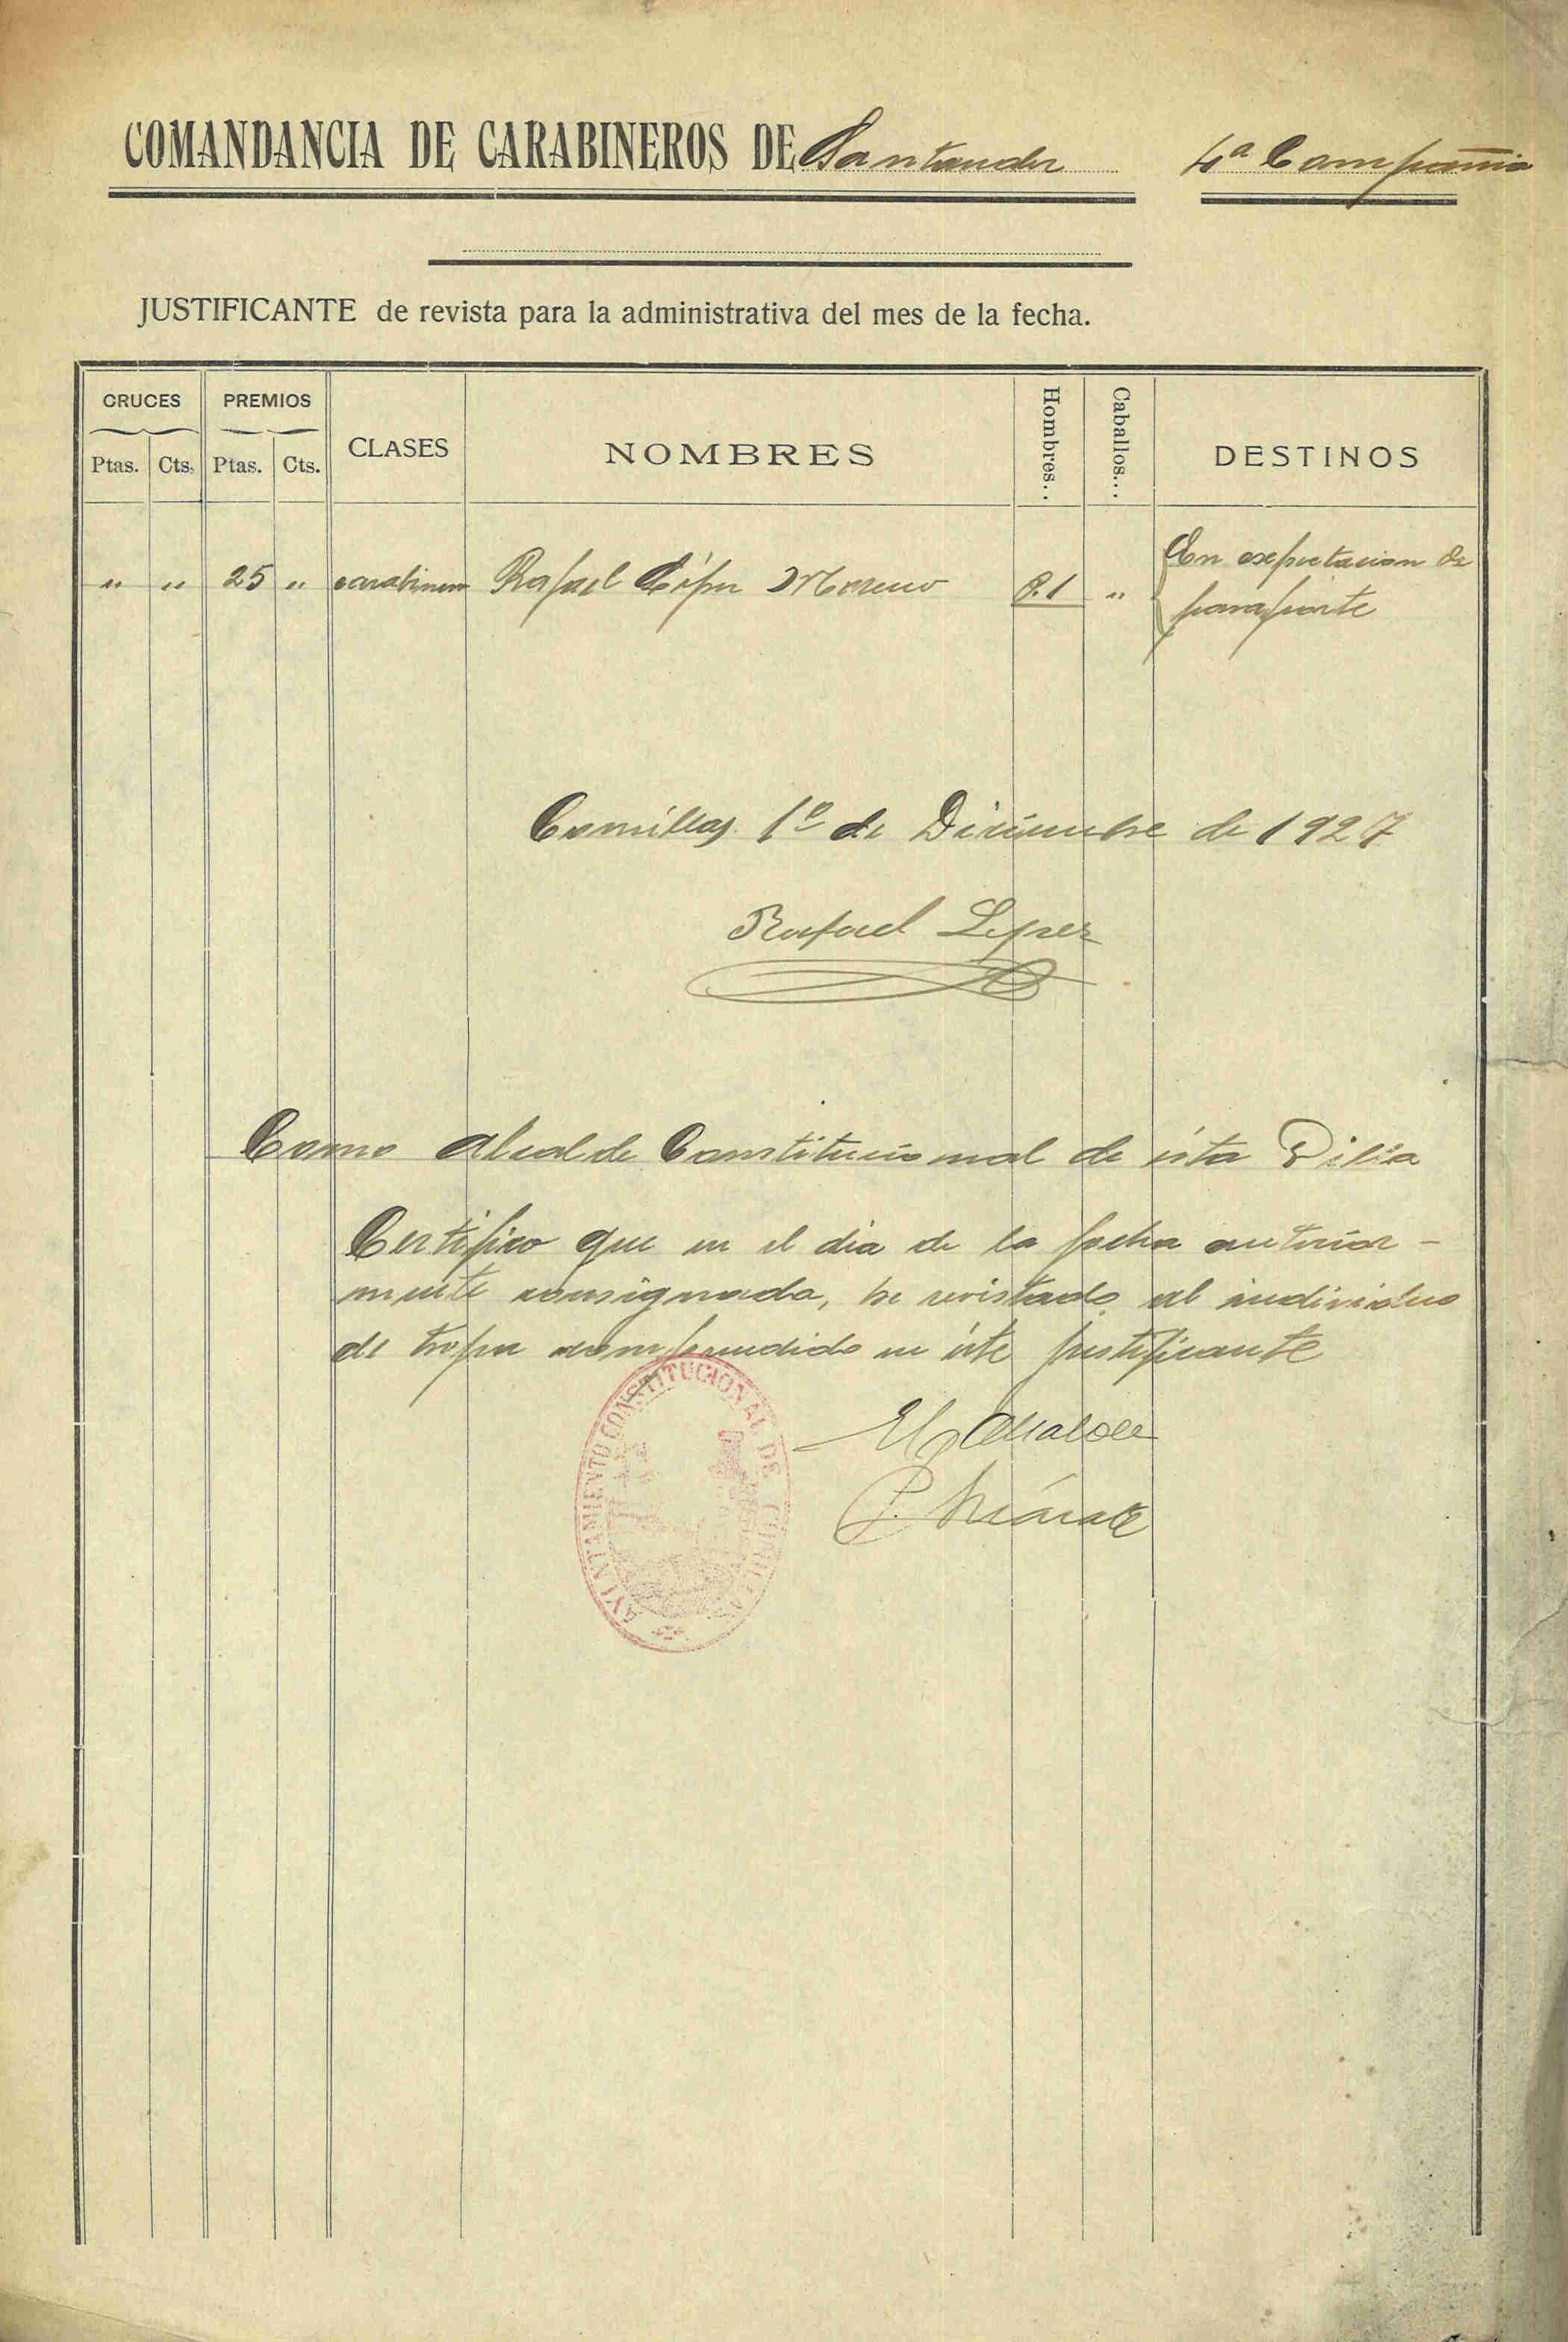 COMANDANCIA DE CARABINEROS DE Santander 4ª Compañia
JUSTIFICANTE de revista para la administrativa del mes de la fecha.
CRUCES PREMIOS CLASES NOMBRES Hombres.. Caballos... DESTINOS
Ptas. Cts. Ptas. Cts.
" " 25 " carabinero Rafael López Moreno P.1 " En expectacion de
pasaporte
Comillas 1º de Diciembre de 1927
Rafael Lopez
Como Alcalde Constitucional de ésta Villa
Certifico que en el dia de la fecha anterior-
mente consignada, he revistado al individuo
de tropa comprendido en éste justificante
El Alcalde
AYUNTAMIENTO CONSTITUCIONAL DE COMILLAS